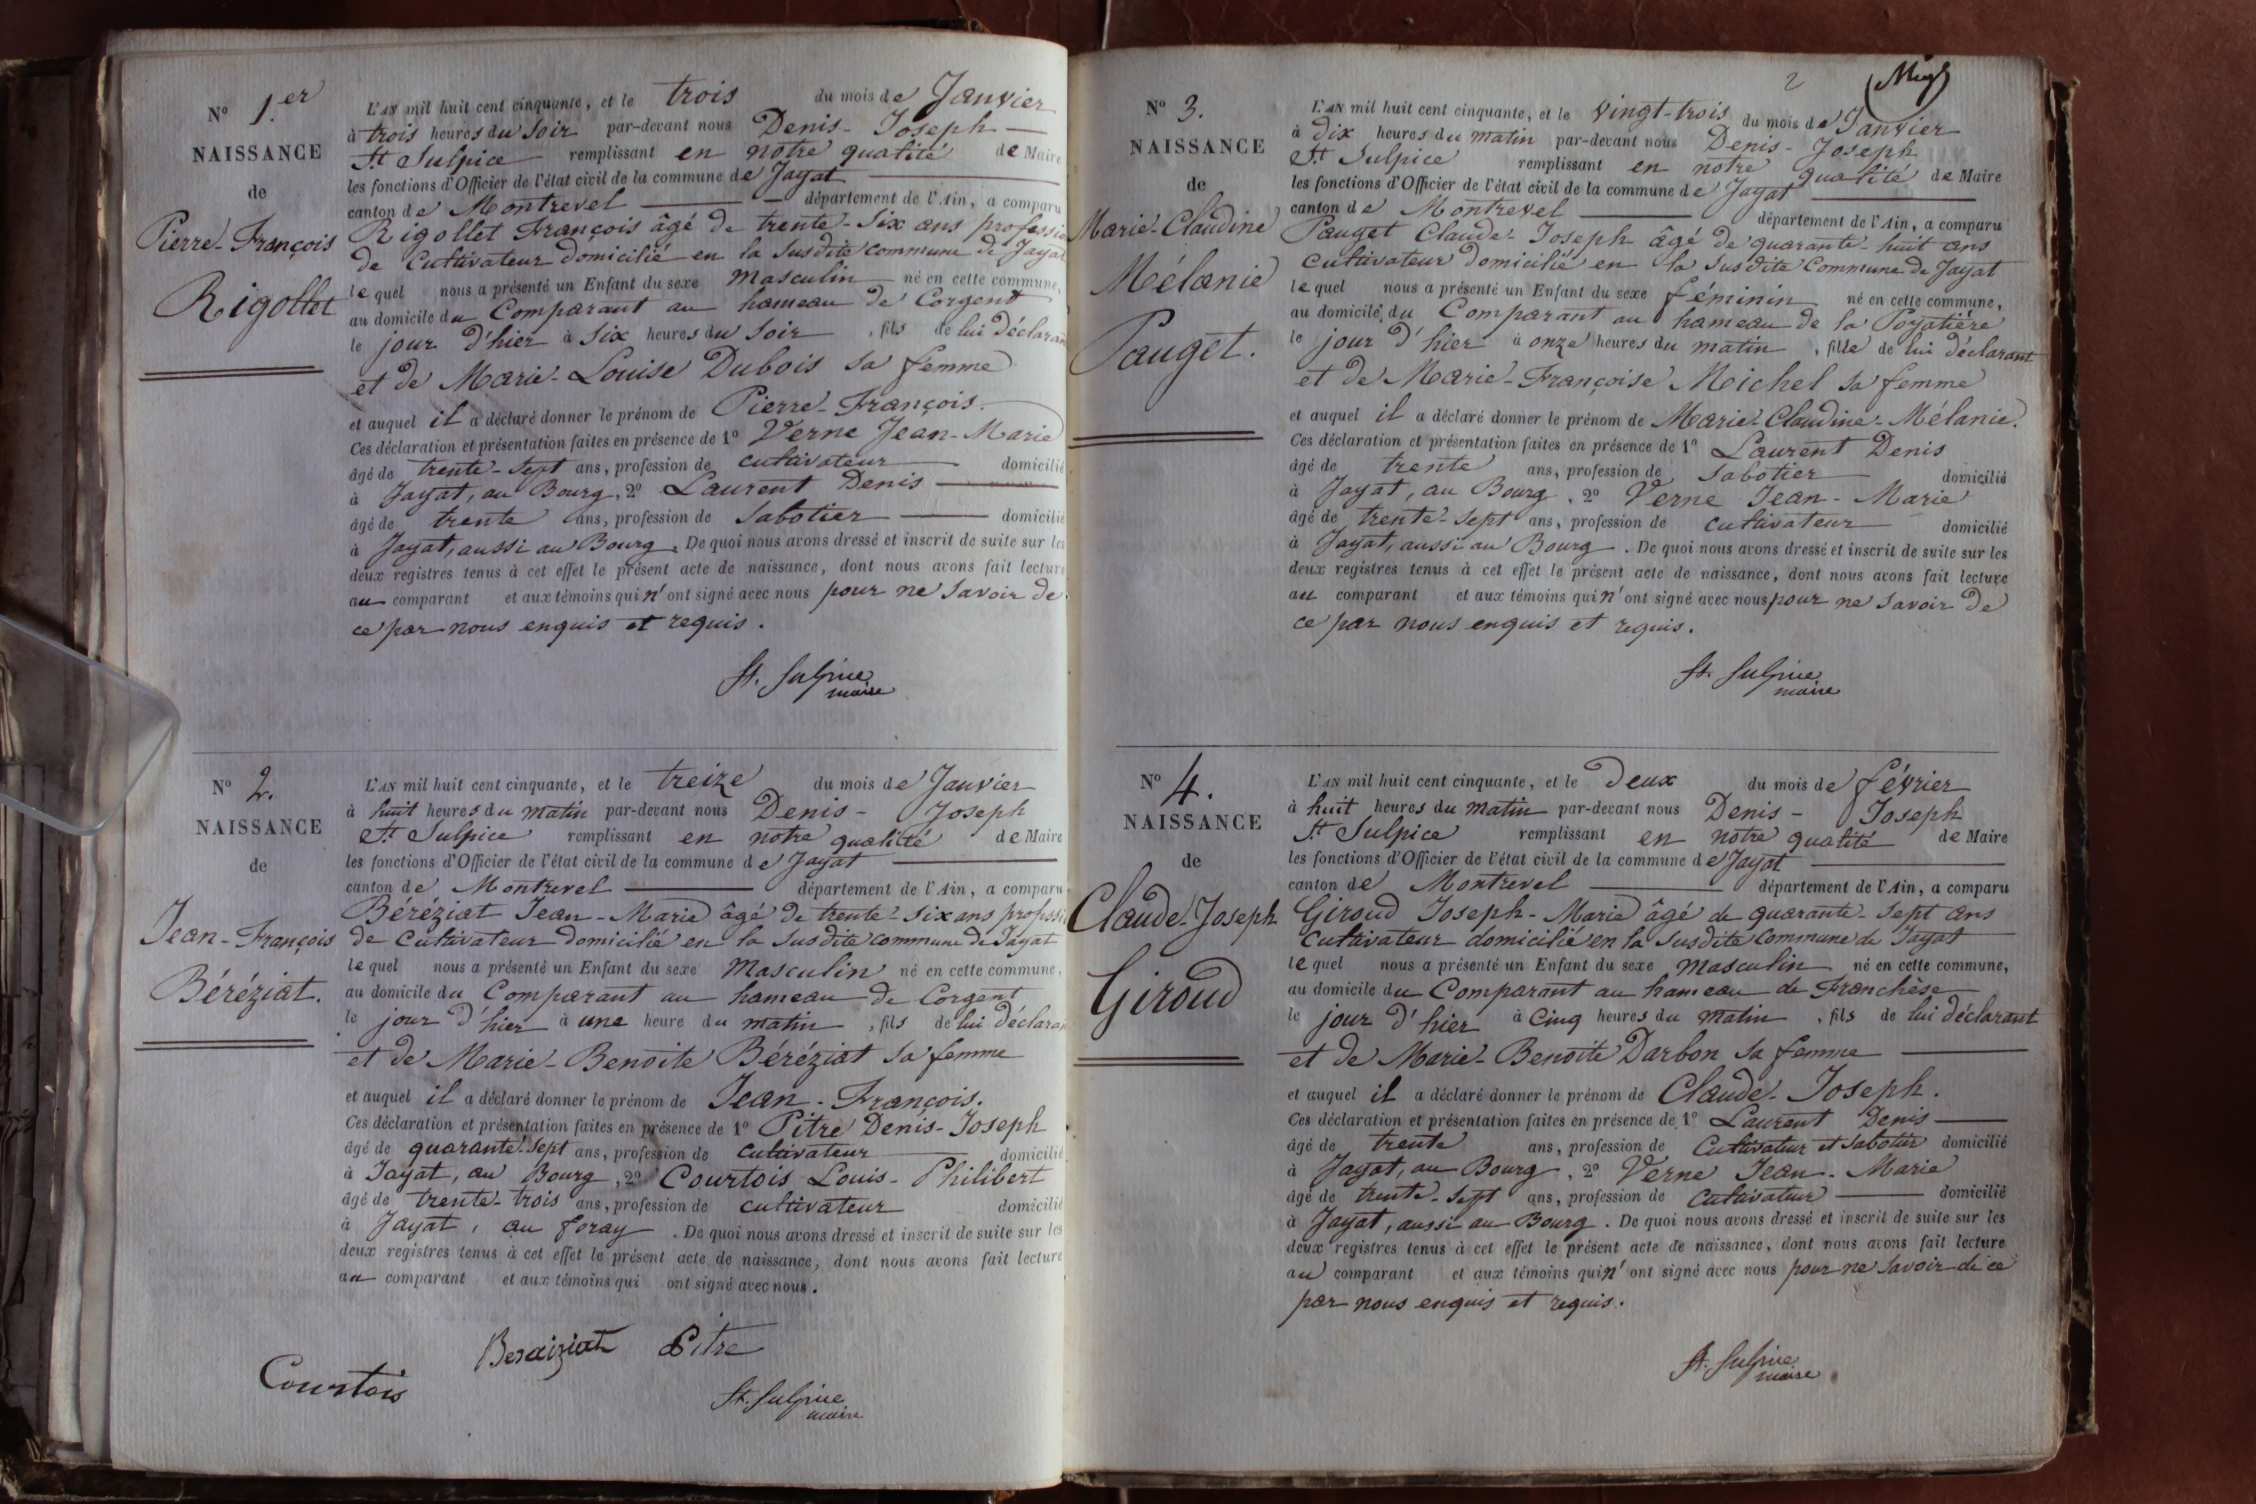 N° 1.er
NAISSANCE
de
Pierre-François
Rigollet
L'AN mil huit cent cinquante, et le trois du mois de Janvier
à trois heures du soir par-devant nous Denis-Joseph
St Sulpice remplissant en notre qualité de Maire
les fonctions d'Officier de l'état civil de la commune de Jayat
canton de Montrevel département de l'Ain, a comparu
Rigollet François âgé de trente-six ans professi
de Cultivateur domicilié en la susdite commune de Jayat
lequel nous a présenté un Enfant du sexe masculin né en cette commune,
au domicile du Comparant au hameau de Corgent
le jour d'hier à six heures du soir, fils de lui déclarant
et de Marie-Louise Dubois sa femme
et auquel il a déclaré donner le prénom de Pierre-François.
Ces déclaration et présentation faites en présence de 1° Verne Jean-Marie
âgé de trente-sept ans, profession de cultivateur domicilié
à Jayat, au Bourg, 2° Laurent Denis
âgé de trente ans, profession de sabotier domicilié
à Jayat, aussi au Bourg. De quoi nous avons dressé et inscrit de suite sur les
deux registres tenus à cet effet le présent acte de naissance, dont nous avons fait lecture
au comparant et aux témoins qui n'ont signé avec nous pour ne savoir de
ce par nous enquis et requis.
St. Sulpice
maire
N° 2.
NAISSANCE
de
Jean-François
Béréziat.
L'AN mil huit cent cinquante, et le treize du mois de Janvier
à huit heures du matin par-devant nous Denis-Joseph
St Sulpice remplissant en notre qualité de Maire
les fonctions d'Officier de l'état civil de la commune de Jayat
canton de Montrevel département de l'Ain, a comparu
Béréziat Jean-Marie âgé de trente-six ans professi
de Cultivateur domicilié en la susdite commune de Jayat
lequel nous a présenté un Enfant du sexe masculin né en cette commune,
au domicile du Comparant au hameau de Corgent
le jour d'hier à une heure du matin, fils de lui déclarant
et de Marie-Benoite Béréziat sa femme
et auquel il a déclaré donner le prénom de Jean-François.
Ces déclaration et présentation faites en présence de 1° Pitre Denis-Joseph
âgé de quarante-sept ans, profession de cultivateur domicilié
à Jayat, au Bourg, 2° Courtois Louis-Philibert
âgé de trente-trois ans, profession de cultivateur domicilié
à Jayat, au foray. De quoi nous avons dressé et inscrit de suite sur les
deux registres tenus à cet effet le présent acte de naissance, dont nous avons fait lecture
au comparant et aux témoins qui ont signé avec nous.
Beraiziat Pitre
Courtois
St. Sulpice
maire
2
N° 3.
NAISSANCE
de
Marie-Claudine
Mélanie
Pauget.
L'AN mil huit cent cinquante, et le vingt-trois du mois de Janvier
à dix heures du matin par-devant nous Denis-Joseph
St Sulpice remplissant en notre qualité de Maire
les fonctions d'Officier de l'état civil de la commune de Jayat
canton de Montrevel département de l'Ain, a comparu
Pauget Claude-Joseph âgé de quarante-huit ans
cultivateur domicilié en la susdite Commune de Jayat
lequel nous a présenté un Enfant du sexe féminin né en cette commune,
au domicile du Comparant au hameau de la Poyatière
le jour d'hier à onze heures du matin, fille de lui déclarant
et de Marie-Françoise Michel sa femme
et auquel il a déclaré donner le prénom de Marie-Claudine-Mélanie.
Ces déclaration et présentation faites en présence de 1° Laurent Denis
âgé de trente ans, profession de sabotier domicilié
à Jayat, au Bourg, 2° Verne Jean-Marie
âgé de trente-sept ans, profession de cultivateur domicilié
à Jayat, aussi au Bourg. De quoi nous avons dressé et inscrit de suite sur les
deux registres tenus à cet effet le présent acte de naissance, dont nous avons fait lecture
au comparant et aux témoins qui n'ont signé avec nous pour ne savoir de
ce par nous enquis et requis.
St. Sulpice
maire
N° 4.
NAISSANCE
de
Claude-Joseph
Giroud
L'AN mil huit cent cinquante, et le Deux du mois de février
à huit heures du matin par-devant nous Denis-Joseph
St Sulpice remplissant en notre qualité de Maire
les fonctions d'Officier de l'état civil de la commune de Jayat
canton de Montrevel département de l'Ain, a comparu
Giroud Joseph-Marie âgé de quarante-sept ans
cultivateur domicilié en la susdite Commune de Jayat
lequel nous a présenté un Enfant du sexe masculin né en cette commune,
au domicile du Comparant au hameau de Franchèse
le jour d'hier à cinq heures du matin, fils de lui déclarant
et de Marie-Benoite Darbon sa femme
et auquel il a déclaré donner le prénom de Claude-Joseph.
Ces déclaration et présentation faites en présence de 1° Laurent Denis
âgé de trente ans, profession de Cultivateur et sabotier domicilié
à Jayat, au Bourg, 2° Verne Jean-Marie
âgé de trente-sept ans, profession de Cultivateur domicilié
à Jayat, aussi au Bourg. De quoi nous avons dressé et inscrit de suite sur les
deux registres tenus à cet effet le présent acte de naissance, dont nous avons fait lecture
au comparant et aux témoins qui n'ont signé avec nous pour ne savoir de ce
par nous enquis et requis.
St. Sulpice
maire